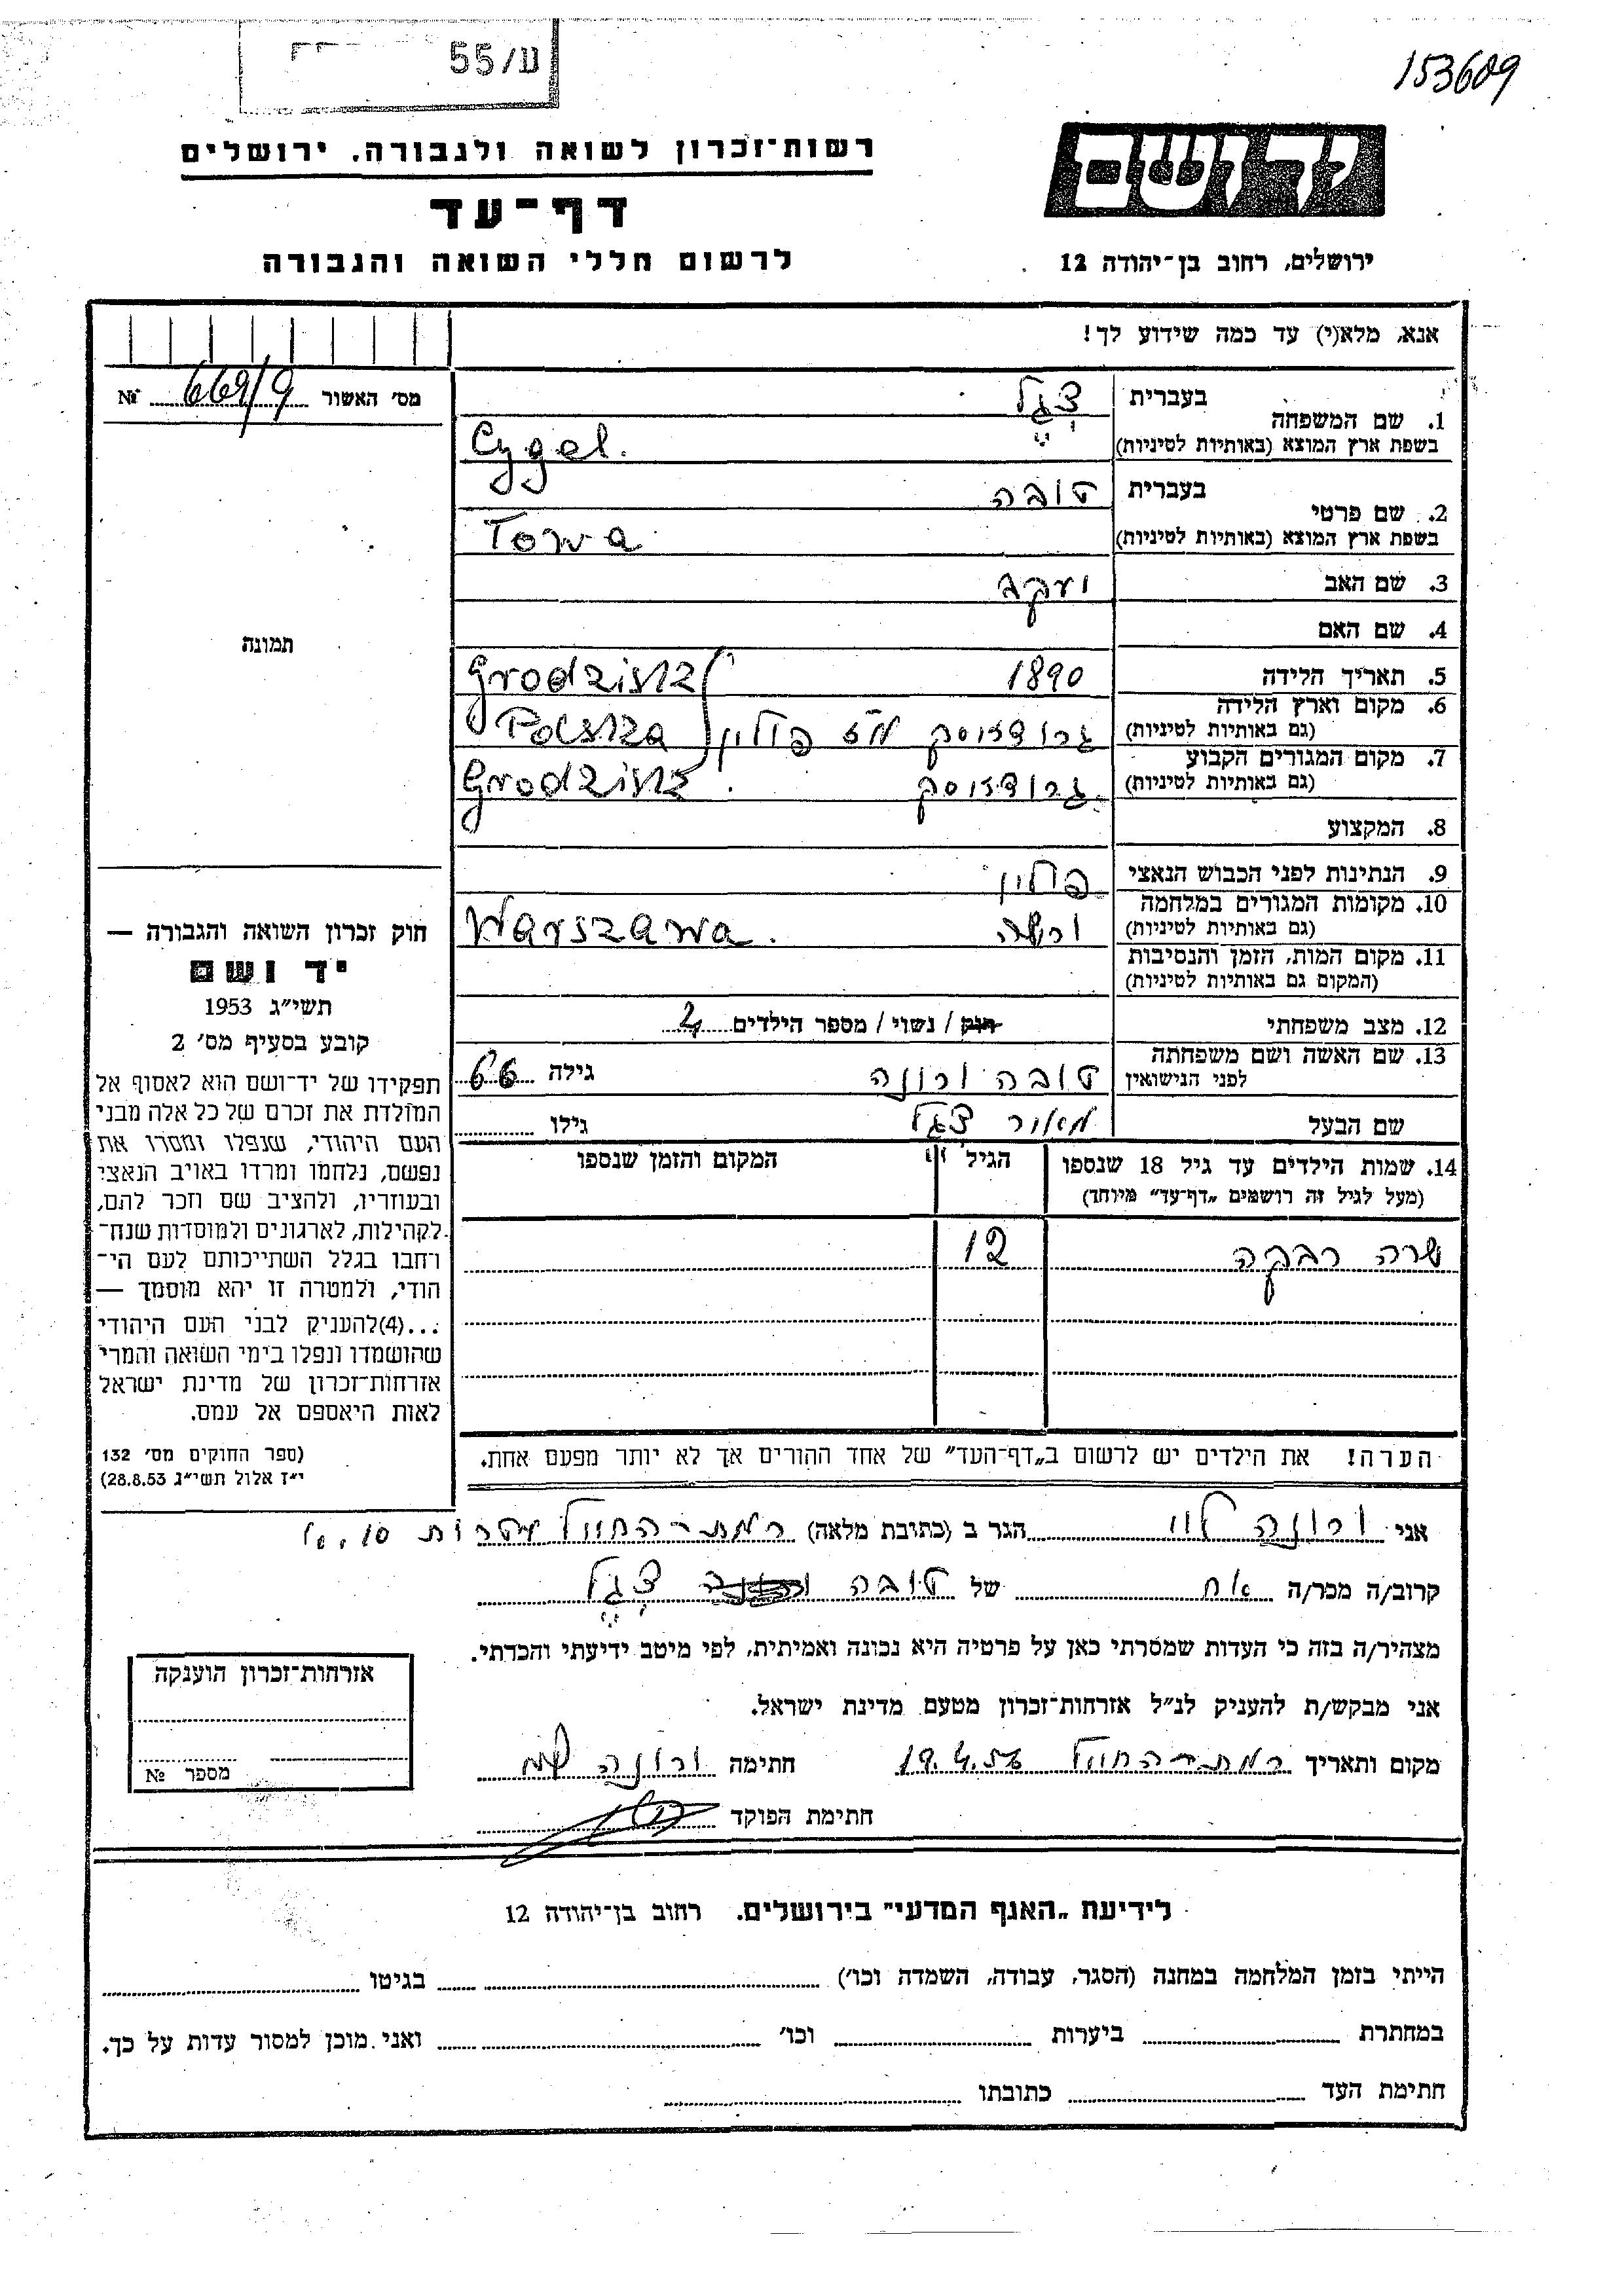 ע/55
153609
רשות־זכרון לשואה ולגבורה, ירושלים
יד ושם
דף־עד
לרשום חללי השואה והגבורה
ירושלים, רחוב בן־יהודה 12
אנא, מלא(י) עד כמה שידוע לך!
מס' האשור 669/9 №
1. שם המשפחה
בעברית צגל
בשפת ארץ המוצא (באותיות לטיניות) Cygel.
2. שם פרטי
בעברית טובה
בשפת ארץ המוצא (באותיות לטיניות) Towa
3. שם האב יעקב
4. שם האם
5. תאריך הלידה 1890
6. מקום וארץ הלידה Grodzisk
(גם באותיות לטיניות) גרודזיסק מז פולין Polska
7. מקום המגורים הקבוע
(גם באותיות לטיניות) גרודזיסק Grodzisk.
8. המקצוע
9. הנתינות לפני הכבוש הנאצי פולין
10. מקומות המגורים במלחמה
(גם באותיות לטיניות) ורשה Warszawa.
11. מקום המות, הזמן והנסיבות
(המקום גם באותיות לטיניות)
12. מצב משפחתי רוק / נשוי / מספר הילדים
13. שם האשה ושם משפחתה
לפני הנישואין טובה ורונה גילה 66
שם הבעל מאור צגל גילו
14. שמות הילדים עד גיל 18 שנספו הגיל המקום והזמן שנספו
(מעל לגיל זה רושמים „דף־עד" מיוחד)
שרה רבקה 12
הערה! את הילדים יש לרשום ב„דף־העד" של אחד ההורים אך לא יותר מפעם אחת.
תמונה
חוק זכרון השואה והגבורה —
יד ושם
תשי"ג 1953
קובע בסעיף מס' 2
תפקידו של יד־ושם הוא לאסוף אל
המולדת את זכרם של כל אלה מבני
העם היהודי, שנפלו ומסרו את
נפשם, נלחמו ומרדו באויב הנאצי
ובעוזריו, ולהציב שם וזכר להם,
לקהילות, לארגונים ולמוסדות שנח־
רחבו בגלל השתייכותם לעם הי־
הודי, ולמטרה זו יהא מוסמך —
...(4)להעניק לבני העם היהודי
שהושמדו ונפלו בימי השואה והמרי
אזרחות־זכרון של מדינת ישראל
לאות היאספם אל עמם.
(ספר החוקים מס' 132
י"ז אלול תשי"ג 28.8.53)
אני ורונה הגר ב (כתובת מלאה) רמת-החייל
קרוב/ה מכר/ה אח של טובה צגל
מצהיר/ה בזה כי העדות שמסרתי כאן על פרטיה היא נכונה ואמיתית, לפי מיטב ידיעתי והכרתי.
אני מבקש/ת להעניק לנ"ל אזרחות־זכרון מטעם מדינת ישראל.
מקום ותאריך רמת-החייל 19.4.56 חתימה ורונה
חתימת הפוקד
אזרחות־זכרון הוענקה
מספר №
לידיעת „האגף המדעי" בירושלים, רחוב בן־יהודה 12
הייתי בזמן המלחמה במחנה (הסגר, עבודה, השמדה וכו') בגיטו
במחתרת ביערות וכו' ואני מוכן למסור עדות על כך.
חתימת העד כתובתו